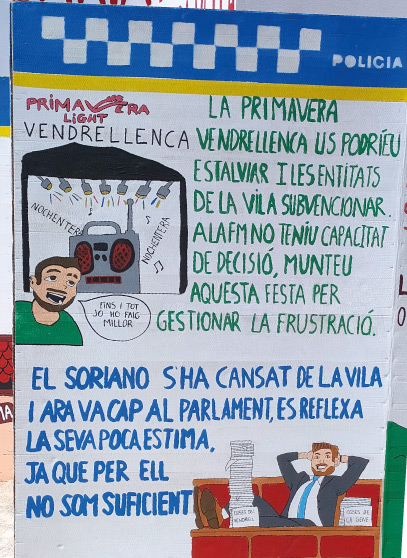 POLICIA
PRIMAVERA
LIGHT
VENDRELLENCA
NOCHENTERA
NOCHENTERA
FINS I TOT
JO HO FAIG
MILLOR
LA PRIMAVERA
VENDRELLENCA US PODRÍEU
ESTALVIAR I LES ENTITATS
DE LA VILA SUBVENCIONAR.
A LA FM NO TENIU CAPACITAT
DE DECISIÓ, MUNTEU
AQUESTA FESTA PER
GESTIONAR LA FRUSTRACIÓ.
EL SORIANO S'HA CANSAT DE LA VILA
I ARA VA CAP AL PARLAMENT, ES REFLEXA
LA SEVA POCA ESTIMA,
JA QUE PER ELL
NO SOM SUFICIENT
COSES DEL
VENDRELL
COSES DE
LA GENE